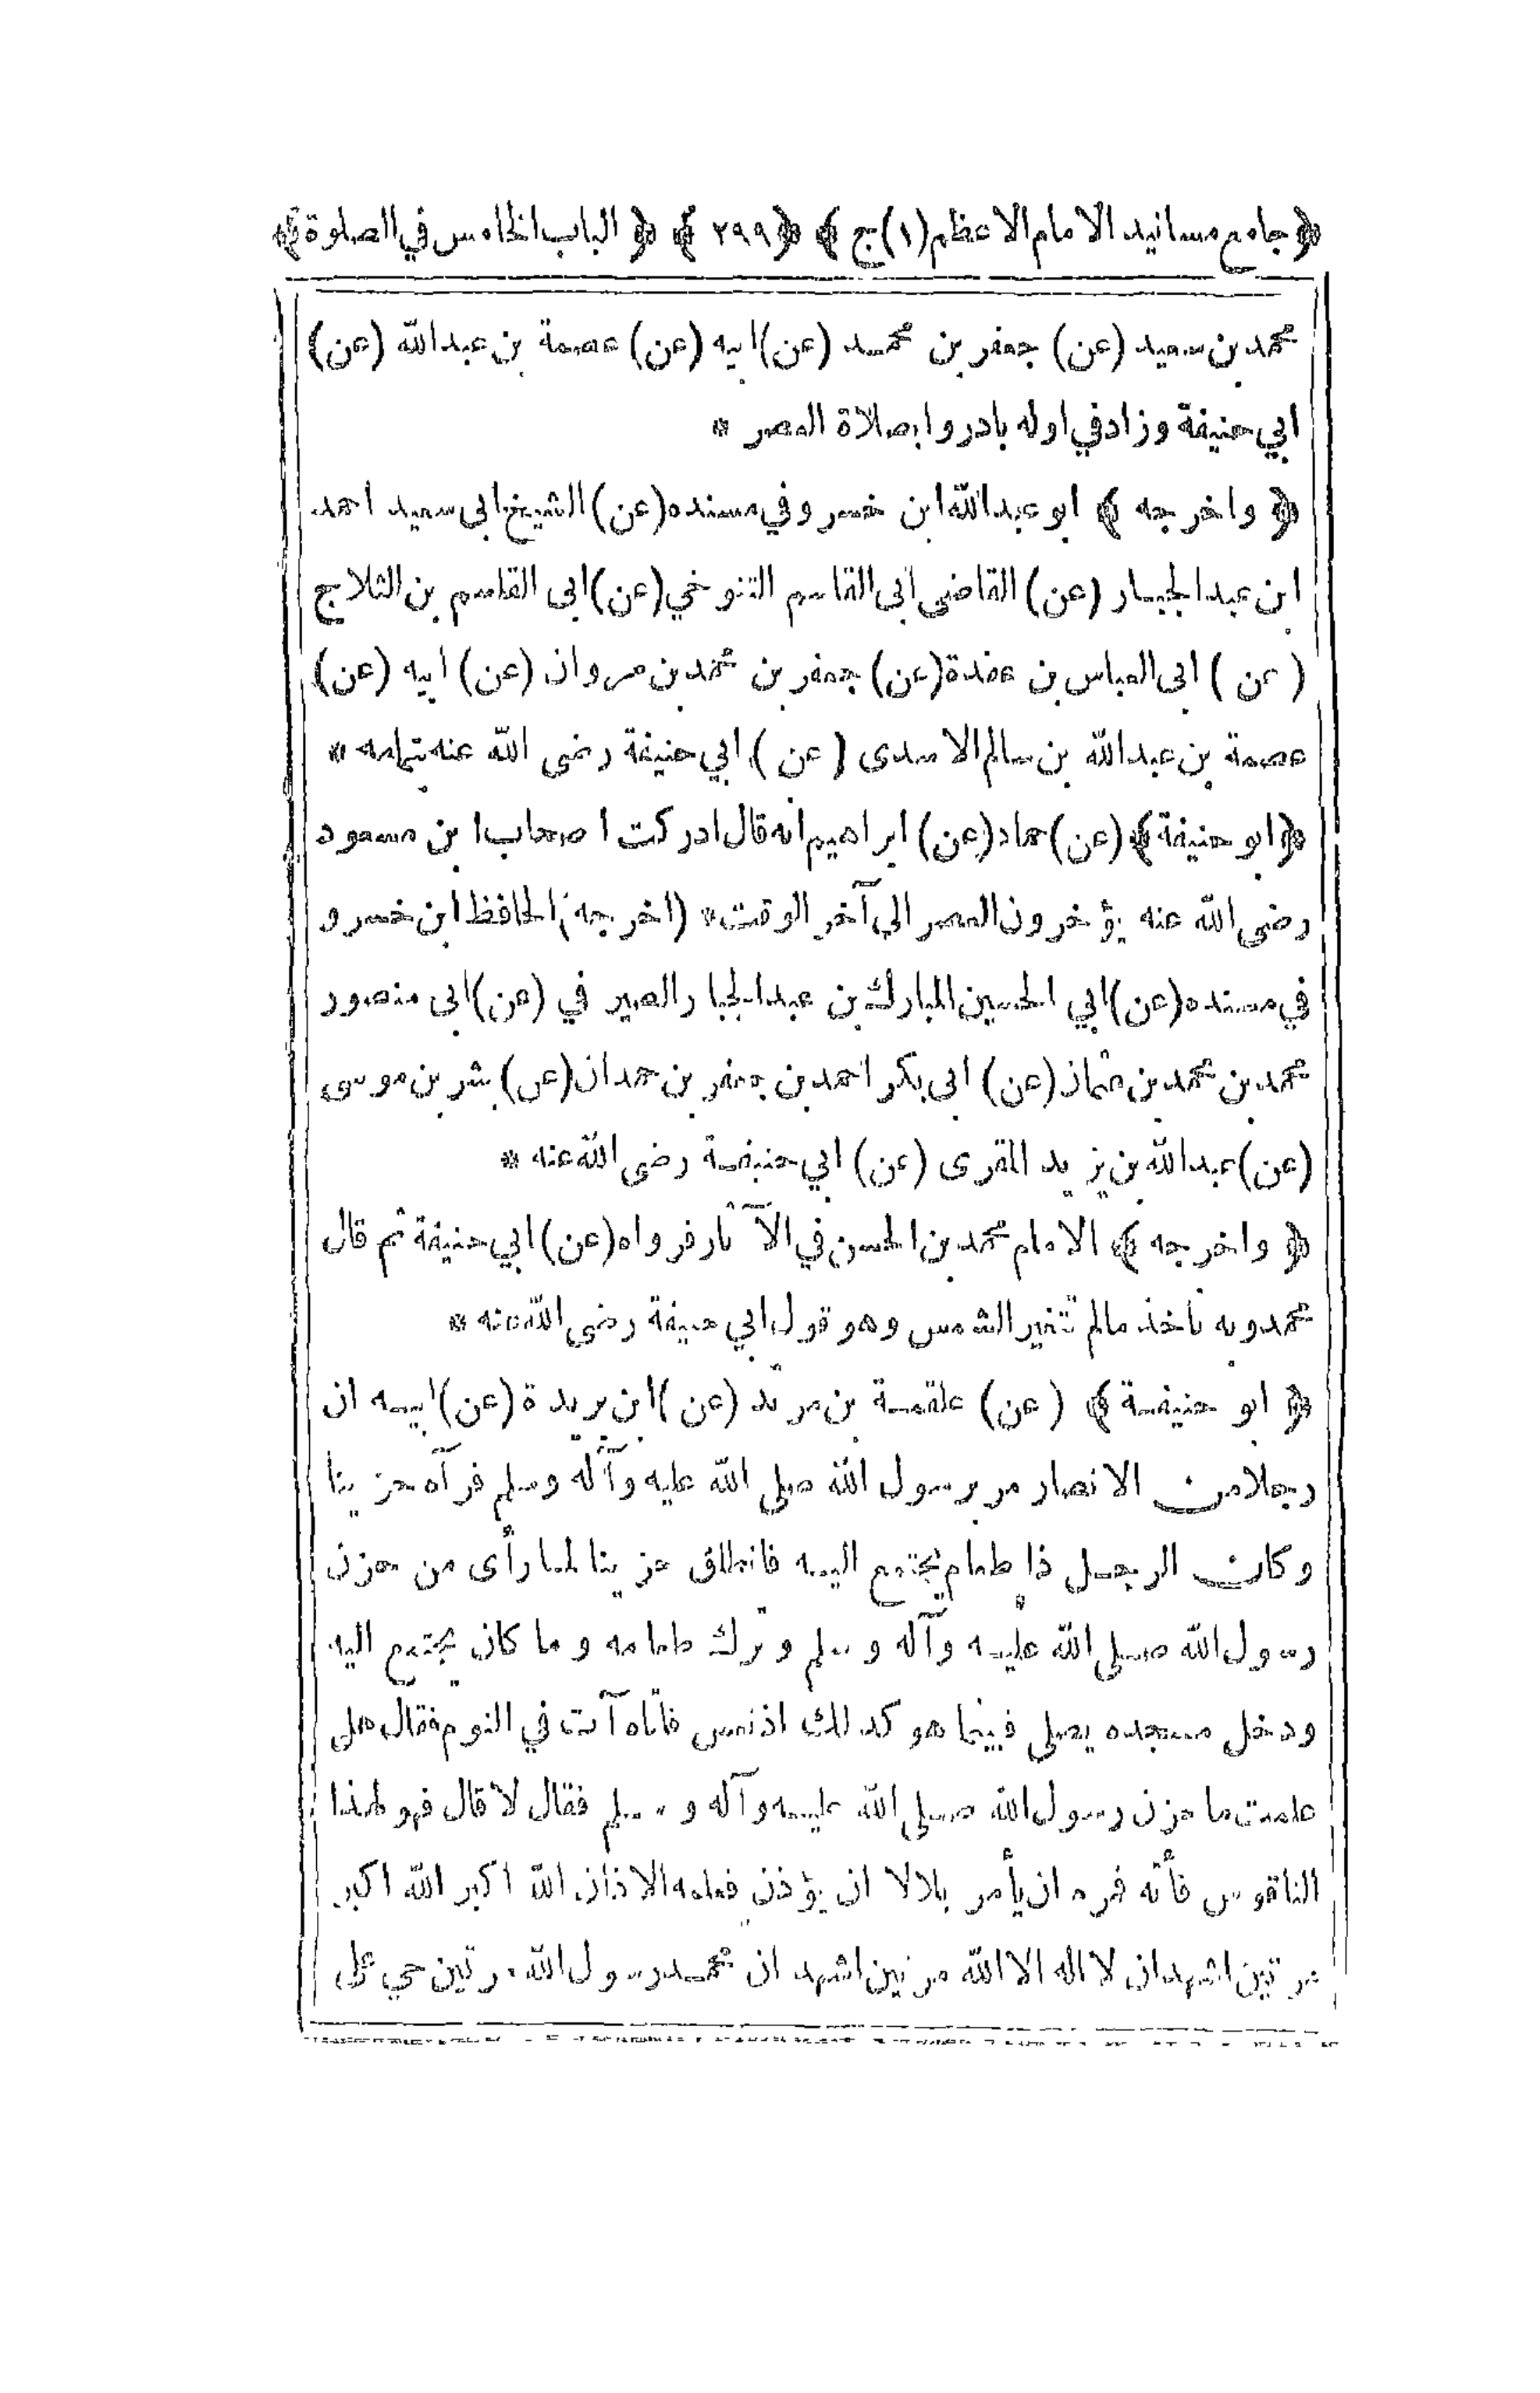 ﴿ جامع مسانيد الامام الاعظم (١) ج ﴾ ﴿ ٢٩٩ ﴾ ﴿ الباب الخامس في الصلوة ﴾
محمد بن سعيد (عن) جعفر بن محمد (عن) ابيه (عن) عصمة بن عبدالله (عن)
ابي حنيفة وزاد في اوله بادروا بصلاة العصر *
﴿ واخرجه ﴾ ابو عبدالله ابن خسرو في مسنده (عن) الشيخ ابى سعيد احمد
ابن عبدالجبار (عن) القاضى ابى القاسم التنوخي (عن) ابى القاسم بن الثلاج
(عن) ابى العباس بن عقدة (عن) جعفر بن محمد بن مروان (عن) ابيه (عن)
عصمة بن عبدالله بن سالم الاسدى (عن) ابي حنيفة رضى الله عنه بتمامه *
﴿ ابو حنيفة ﴾ (عن) حماد (عن) ابراهيم انه قال ادركت اصحاب ابن مسعود
رضى الله عنه يؤخرون العصر الى آخر الوقت * (اخرجه) الحافظ ابن خسرو
في مسنده (عن) ابي الحسين المبارك بن عبدالجبار الصيرفي (عن) ابى منصور
محمد بن محمد بن عثمان (عن) ابى بكر احمد بن جعفر بن حمدان (عن) بشر بن موسى
(عن) عبدالله بن يزيد المقرى (عن) ابي حنيفة رضى الله عنه *
﴿ واخرجه ﴾ الامام محمد بن الحسن في الآثار فرواه (عن) ابي حنيفة ثم قال
محمد وبه نأخذ مالم تتغير الشمس وهو قول ابي حنيفة رضى الله عنه *
﴿ ابو حنيفة ﴾ (عن) علقمة بن مرثد (عن) ابن بريدة (عن) ابيه ان
رجلا من الانصار مر برسول الله صلى الله عليه وآله وسلم فرآه حزينا
وكان الرجل ذا طعام يجتمع اليه فانطلق حزينا لما رأى من حزن
رسول الله صلى الله عليه وآله وسلم وترك طعامه وما كان يجتمع اليه
ودخل مسجده يصلى فبينما هو كذلك اذ نعس فاتاه آت في النوم فقال هل
علمت ما حزن رسول الله صلى الله عليه وآله وسلم فقال لا قال فهو لهذا
الناقوس فأته فمره ان يأمر بلالا ان يؤذن فعلمه الاذان الله اكبر الله اكبر
مرتين اشهد ان لا اله الا الله مرتين اشهد ان محمد رسول الله مرتين حي على